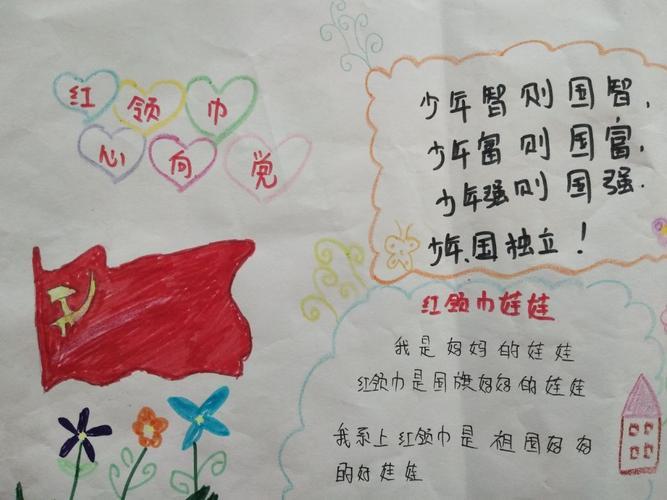 红领巾
心向党
少年智则国智，
少年富则国富，
少年强则国强.
少年、国独立！
红领巾娃娃
我是妈妈的娃娃
红领巾是国旗妈妈的娃娃
我系上红领巾是祖国妈妈
的好娃娃